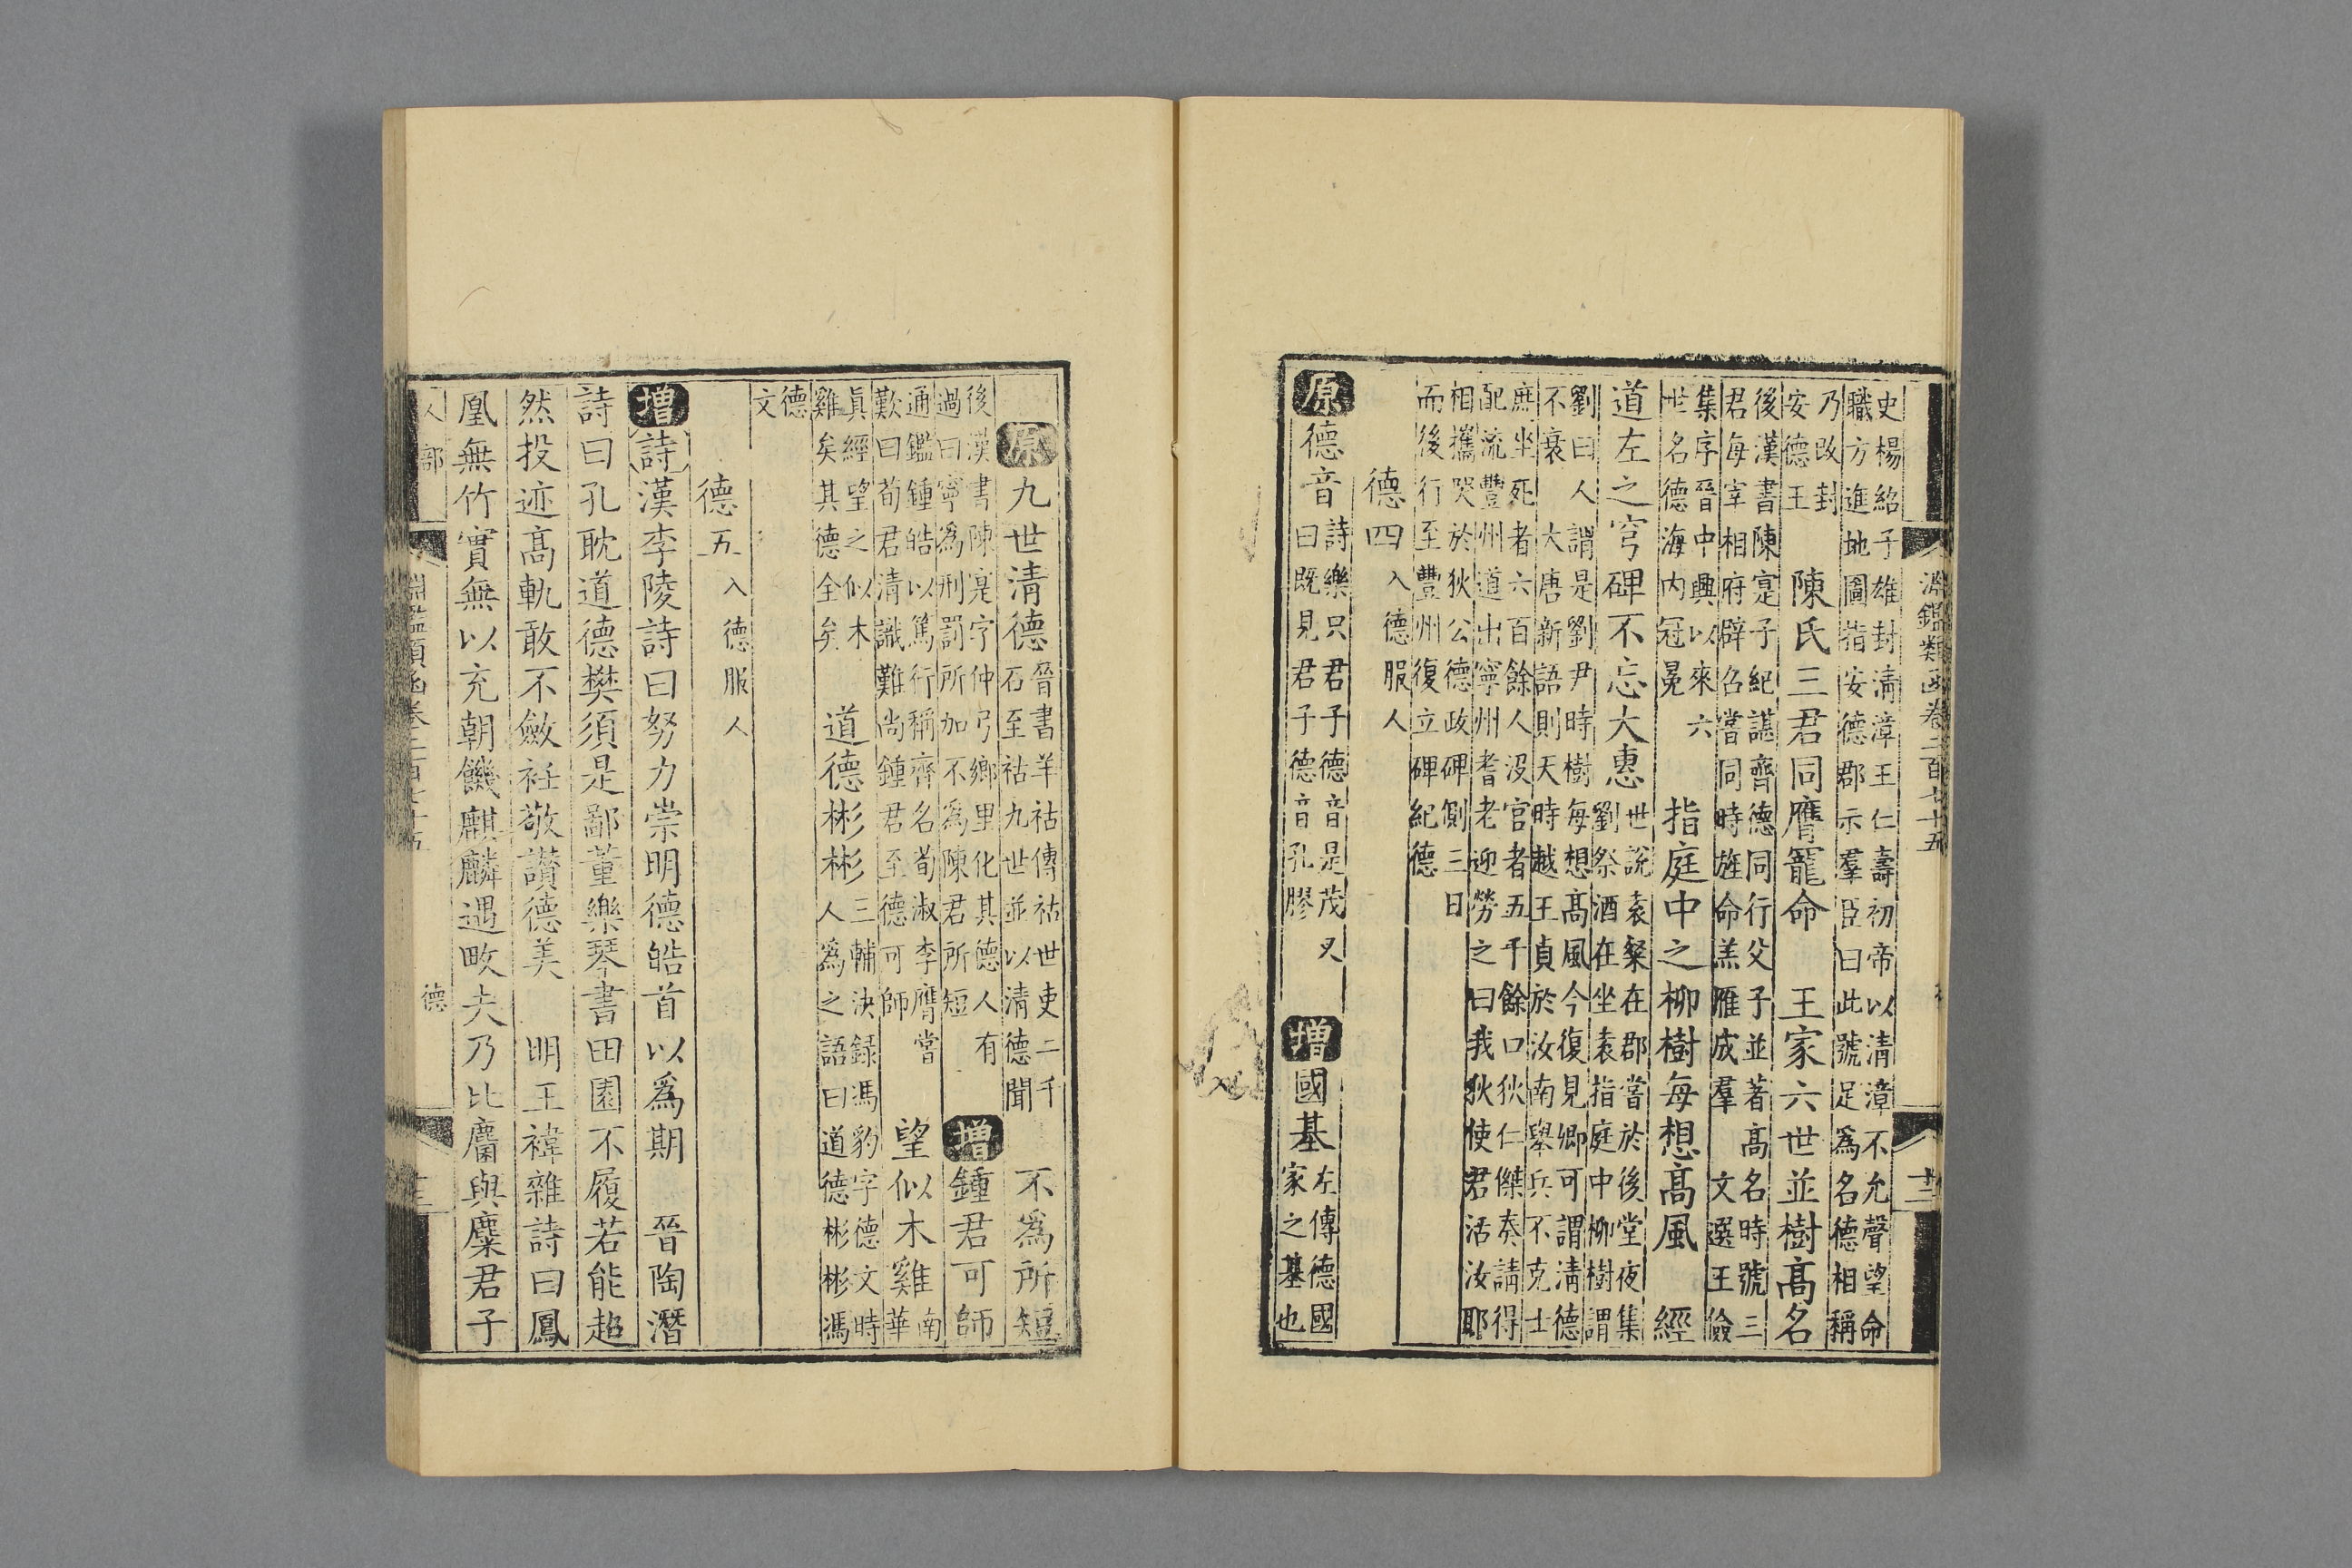 淵鑑類函卷二百七十五 十三
史楊紹子雄封清漳王仁壽初帝以清漳不允聲望命
職方進地圖指安德郡示羣臣曰此號足爲名德相稱
乃改封
安德王
陳氏三君同膺寵命 王家六世並樹高名
後漢書陳寔子紀諶齊德同行父子並著高名時號三
君每宰相府辟召嘗同時旌命羔雁成羣 文選王儉
集序晉中興以來六
世名德海内冠冕
指庭中之柳樹每想高風 經
道左之穹碑不忘大惠
世說袁粲在郡嘗於後堂夜集
劉祭酒在坐袁指庭中柳樹謂
劉曰人謂是劉尹時樹每想高風今復見卿可謂清德
不衰 大唐新語則天時越王貞於汝南舉兵不克士
庶坐死者六百餘人没官者五千餘口狄仁傑奏請得
配流豐州道出寧州耆老迎勞之曰我狄使君活汝耶
相攜哭於狄公德政碑側三日
而後行至豐州復立碑紀德
德四 入德服人
原 德音
詩樂只君子德音是茂又
曰既見君子德音孔膠
增 國基
左傳德國
家之基也
原 九世清德
晉書羊祜傳祜世吏二千
石至祜九世並以清德聞
不爲所短
後漢書陳寔字仲弓鄉里化其德人有
過曰寧爲刑罰所加不爲陳君所短
增 鍾君可師
通鑑鍾皓以篤行稱齊名荀淑李膺嘗
歎曰荀君清識難尚鍾君至德可師
望似木雞
南
華
眞經望之似木
雞矣其德全矣
道德彬彬
三輔決録馮豹字德文時
人爲之語曰道德彬彬馮
德
文
德五 入德服人
增 詩 漢李陵詩曰努力崇明德皓首以爲期 晉陶潛
詩曰孔耽道德樊須是鄙董樂琴書田園不履若能超
然投迹高軌敢不斂衽敬讃德美 明王褘雜詩曰鳳
凰無竹實無以充朝饑麒麟遇畋夫乃比麕與麋君子
人部 淵鑑類函卷二百七十五 德 十三